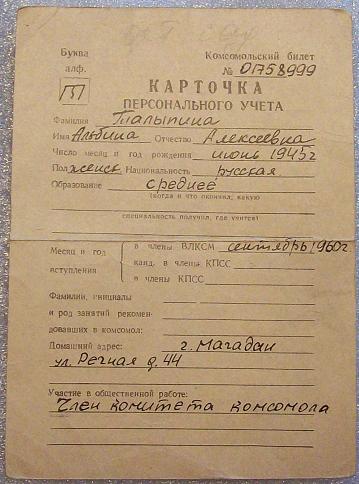 Буква
алф.
Комсомольский билет
№ 01758999
КАРТОЧКА
ПЕРСОНАЛЬНОГО УЧЕТА
Фамилия Талыпина
Имя Альбина Отчество Алексеевна
Число месяц и год рождения июнь 1945г
Пол женск Национальность русская
Образование среднеё
(когда и что окончил, какую
специальность получил, где учится)
Месяц и год
вступления
в члены ВЛКСМ сентябрь 1960г
канд. в члены КПСС
в члены КПСС
Фамилии, инициалы
и род занятий рекомен-
довавших в комсомол:
Домашний адрес: г. Магадан
ул. Речная д. 44
Участие в общественной работе:
Член комитета комсомола